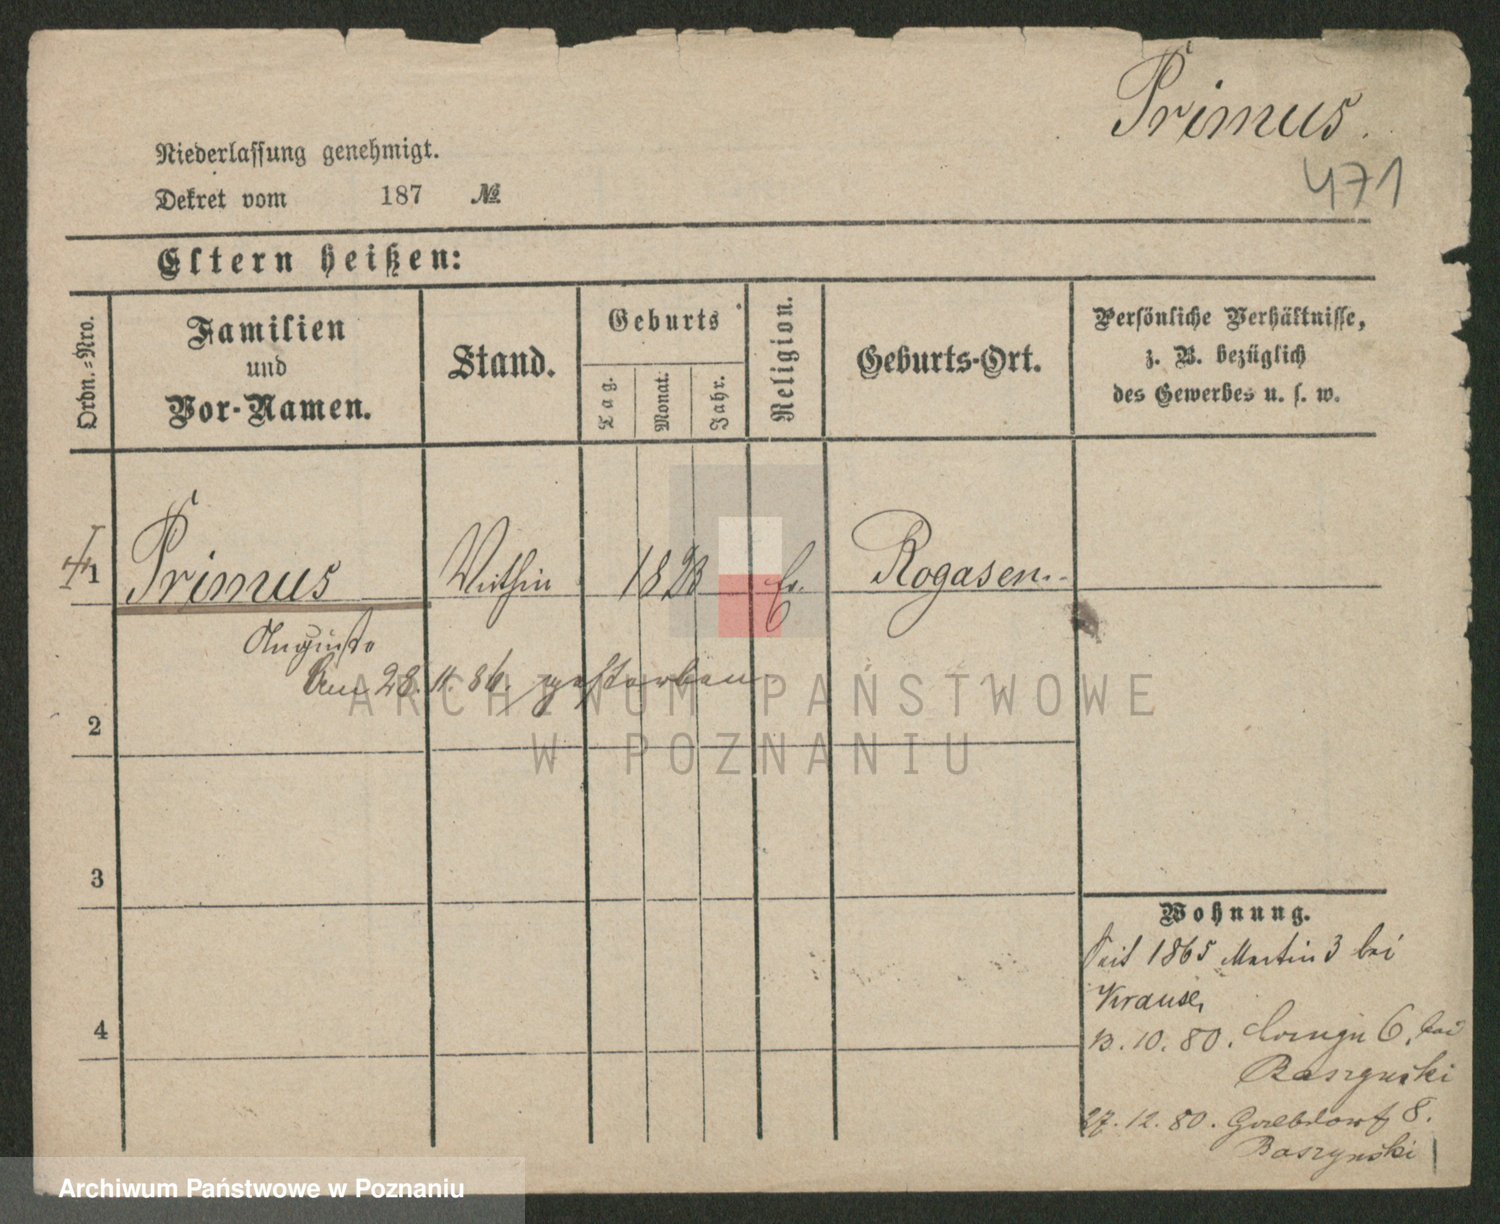 Primus.
471
Niederlassung genehmigt.
Dekret vom 187 №
Eltern heißen:
Ordn.-Nro.
Familien
und
Vor-Namen.
Stand.
Geburts
Tag.
Monat.
Jahr.
Religion.
Geburts-Ort.
Persönliche Verhältnisse,
z. B. bezüglich
des Gewerbes u. s. w.
1 Primus 1823 Ev. Rogasen
Auguste
Am 28. 11. 86. gestorben
ARCHIWUM PAŃSTWOWE
W POZNANIU
2
3
4
Wohnung.
Seit 1865 Martin 3 bei
Krause,
13. 10. 80. 6. bei
27. 12. 80. 8.
Archiwum Państwowe w Poznaniu